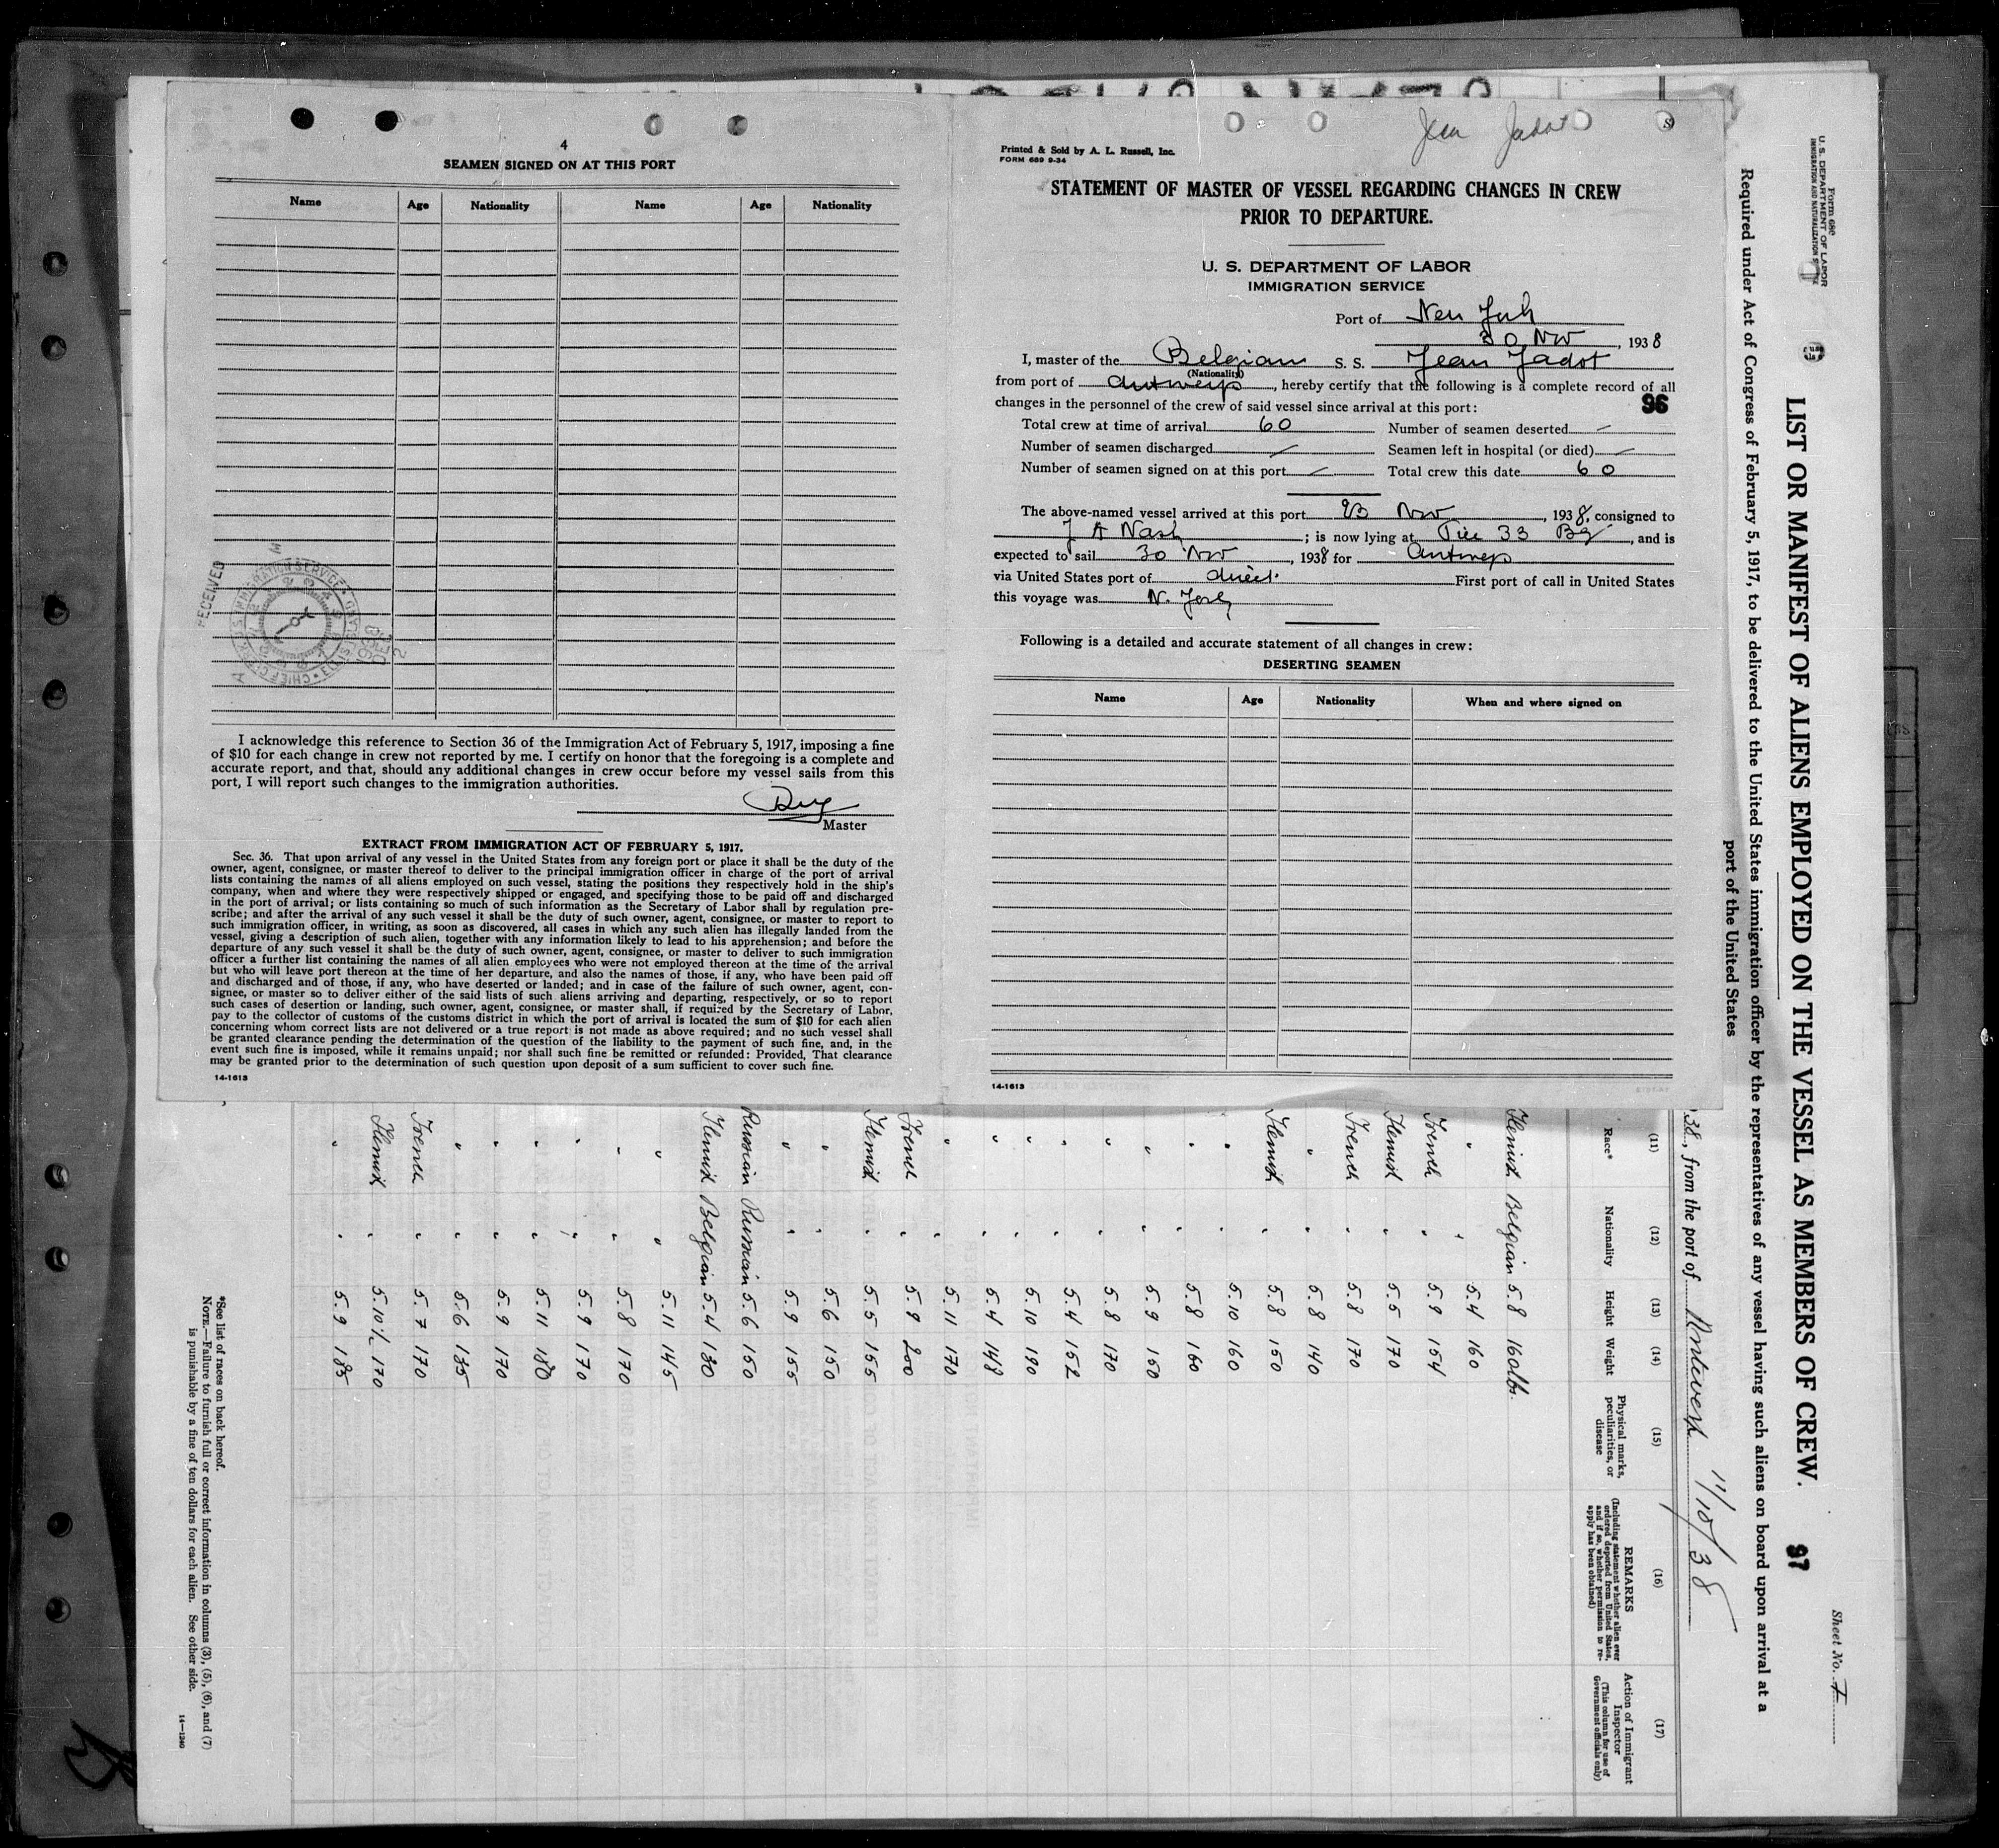 4
SEAMEN SIGNED ON AT THIS PORT
Name Age Nationality Name Age Nationality
RECEIVED
I acknowledge this reference to Section 36 of the Immigration Act of February 5, 1917, imposing a fine
of $10 for each change in crew not reported by me. I certify on honor that the foregoing is a complete and
accurate report, and that, should any additional changes in crew occur before my vessel sails from this
port, I will report such changes to the immigration authorities.
Master
EXTRACT FROM IMMIGRATION ACT OF FEBRUARY 5, 1917.
Sec. 36. That upon arrival of any vessel in the United States from any foreign port or place it shall be the duty of the
owner, agent, consignee, or master thereof to deliver to the principal immigration officer in charge of the port of arrival
lists containing the names of all aliens employed on such vessel, stating the positions they respectively hold in the ship's
company, when and where they were respectively shipped or engaged, and specifying those to be paid off and discharged
in the port of arrival; or lists containing so much of such information as the Secretary of Labor shall by regulation pre-
scribe; and after the arrival of any such vessel it shall be the duty of such owner, agent, consignee, or master to report to
such immigration officer, in writing, as soon as discovered, all cases in which any such alien has illegally landed from the
vessel, giving a description of such alien, together with any information likely to lead to his apprehension; and before the
departure of any such vessel it shall be the duty of such owner, agent, consignee, or master to deliver to such immigration
officer a further list containing the names of all alien employees who were not employed thereon at the time of the arrival
but who will leave port thereon at the time of her departure, and also the names of those, if any, who have been paid off
and discharged and of those, if any, who have deserted or landed; and in case of the failure of such owner, agent, con-
signee, or master so to deliver either of the said lists of such aliens arriving and departing, respectively, or so to report
such cases of desertion or landing, such owner, agent, consignee, or master shall, if required by the Secretary of Labor,
pay to the collector of customs of the customs district in which the port of arrival is located the sum of $10 for each alien
concerning whom correct lists are not delivered or a true report is not made as above required; and no such vessel shall
be granted clearance pending the determination of the question of the liability to the payment of such fine, and, in the
event such fine is imposed, while it remains unpaid; nor shall such fine be remitted or refunded: Provided, That clearance
may be granted prior to the determination of such question upon deposit of a sum sufficient to cover such fine.
14-1613
Jean Jadot
Printed & Sold by A. L. Russell, Inc.
FORM 689 9-34
STATEMENT OF MASTER OF VESSEL REGARDING CHANGES IN CREW
PRIOR TO DEPARTURE.
U. S. DEPARTMENT OF LABOR
IMMIGRATION SERVICE
Port of New York
30 Nov, 1938
I, master of the Belgian S. S. Jean Jadot
(Nationality)
from port of Antwerp, hereby certify that the following is a complete record of all
changes in the personnel of the crew of said vessel since arrival at this port:
96
Total crew at time of arrival 60 Number of seamen deserted
Number of seamen discharged Seamen left in hospital (or died)
Number of seamen signed on at this port Total crew this date 60
The above-named vessel arrived at this port Nov, 1938, consigned to
J A Nash; is now lying at Pier 33 , and is
expected to sail 30 Nov, 1938 for Antwerp
via United States port of direct. First port of call in United States
this voyage was N. York
Following is a detailed and accurate statement of all changes in crew:
DESERTING SEAMEN
Name Age Nationality When and where signed on
14-1613
Form 680
U. S. DEPARTMENT OF LABOR
IMMIGRATION AND NATURALIZATION
Sheet No. 7
LIST OR MANIFEST OF ALIENS EMPLOYED ON THE VESSEL AS MEMBERS OF CREW. 97
Required under Act of Congress of February 5, 1917, to be delivered to the United States immigration officer by the representatives of any vessel having such aliens on board upon arrival at a
port of the United States
38, from the port of Antwerp 11/10/38
(11) (12) (13) (14) (15) (16) (17)
Race* Nationality Height Weight Physical marks, peculiarities, or disease REMARKS (Including statement whether alien ever ordered deported from United States, and if so, whether permission to re-apply has been obtained) Action of Immigrant Inspector (This column for use of Government officials only)
Flemish Belgian 5.8 160lbs.
" " 5.4 160
French " 5.9 154
Flemish " 5.5 170
French " 5.8 170
" " 5.8 140
Flemish " 5.8 150
" " 5.10 160
" " 5.8 160
" " 5.9 150
" " 5.8 170
" " 5.4 152
" " 5.10 190
" " 5.4 148
" " 5.11 170
French " 5.9 200
Flemish " 5.5 155
" " 5.6 150
" " 5.9 155
Russian Russian 5.6 150
Flemish Belgian 5.4 130
" " 5.11 145
" " 5.8 170
" " 5.9 170
" " 5.11 180
" " 5.9 170
" " 5.6 135
French " 5.7 170
Flemish " 5.10½ 170
" " 5.9 185
*See list of races on back hereof.
NOTE.—Failure to furnish full or correct information in columns (3), (5), (6), and (7)
is punishable by a fine of ten dollars for each alien. See other side.
14—1240